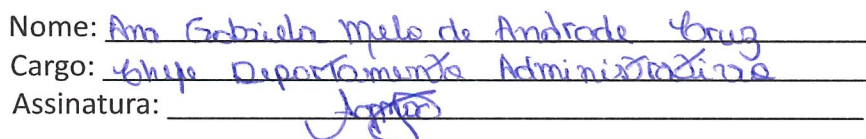 Nome: Ana Gabriela Melo de Andrade Cruz
Cargo: Chefe Departamento Administrativo
Assinatura: